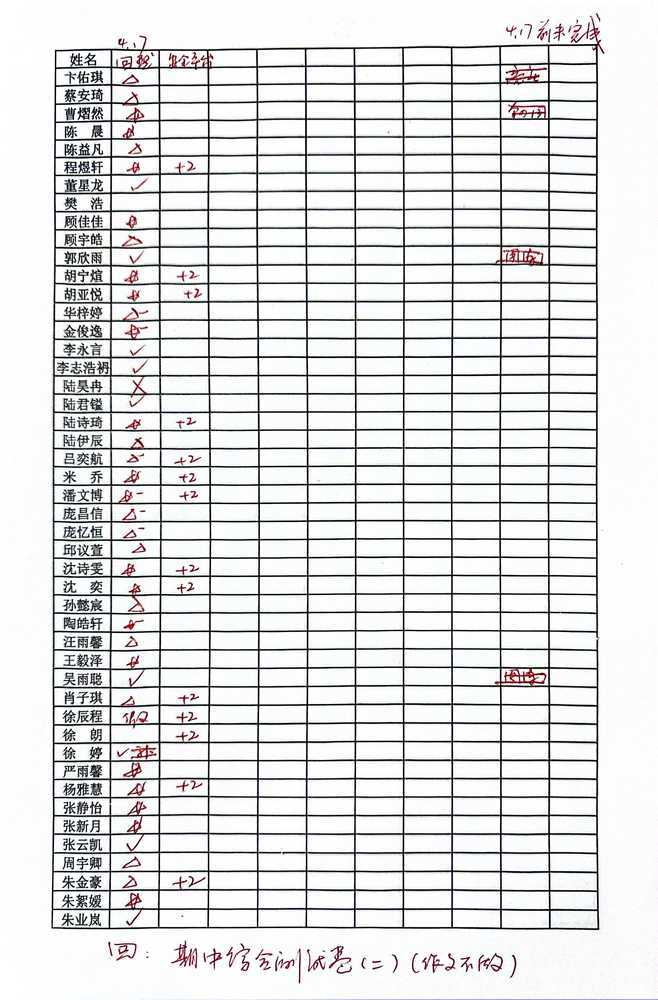 4.17 4.17前未完成
姓名 回
卞佑琪 △
蔡安琦
曹熠然
陈 晨
陈益凡 △
程煜轩 +2
董星龙 ✓
樊 浩
顾佳佳
顾宇皓 △
郭欣雨 ✓
胡宁煊 +2
胡亚悦 +2
华梓婷 △-
金俊逸
李永言 ✓
李志浩礽 ✓
陆昊冉 ✗
陆君镒 ✓
陆诗琦 +2
陆伊辰
吕奕航 △- +2
米 乔 +2
潘文博 +2
庞昌信 △-
庞忆恒 △-
邱议萱 △
沈诗雯 +2
沈 奕 +2
孙懿宸 △
陶皓轩
汪雨馨 △
王毅泽
吴雨聪 ✓
肖子琪 △ +2
徐辰程 +2
徐 朗 +2
徐 婷 ✓
严雨馨
杨雅慧 +2
张静怡
张新月
张云凯 ✓
周宇卿 △
朱金豪 △ +2
朱絮媛
朱业岚 ✓
回：期中综合测试卷(二)(作文不做)